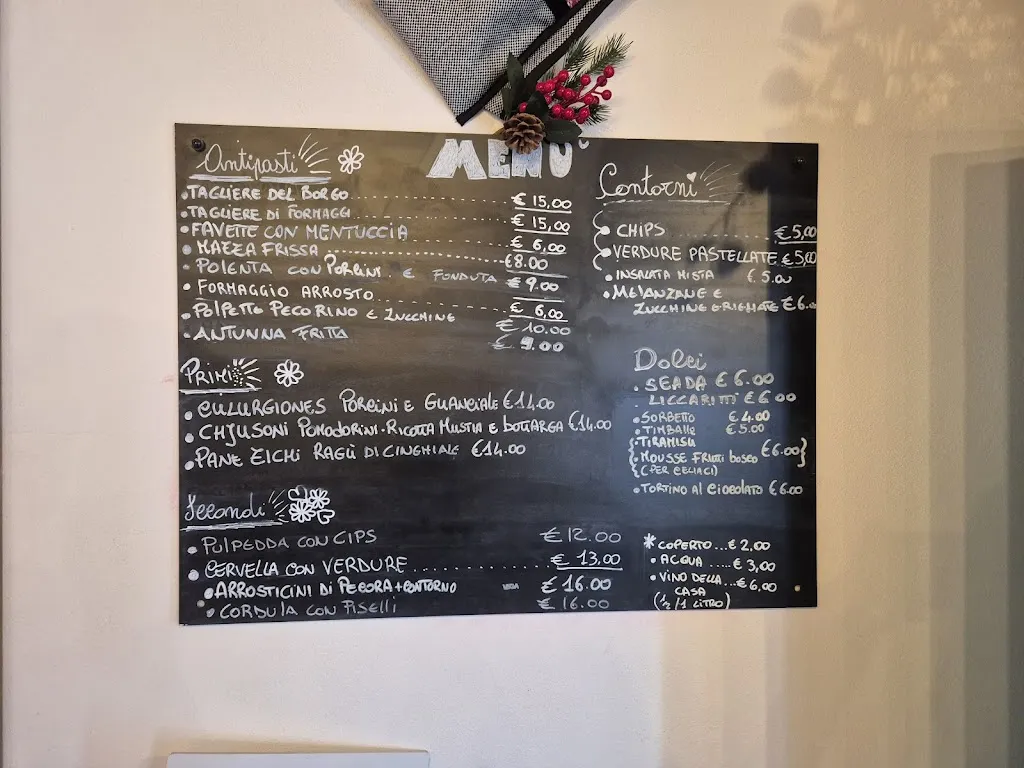 MENU'
Antipasti
TAGLIERE DEL BORGO € 15,00
TAGLIERE DI FORMAGGI € 15,00
FAVETTE CON MENTUCCIA € 6,00
MAZZA FRISSA €8.00
POLENTA CON PORCINI E FONDUTA € 9.00
FORMAGGIO ARROSTO € 6,00
POLPETTE PECORINO E ZUCCHINE € 10.00
ANTUNNA FRITTA € 9.00
PRIMI
CULURGIONES PORCINI E GUANCIALE €14.00
CHJUSONI POMODORINI-RICOTTA MUSTIA E BOTTARGA €14.00
PANE ZICHI RAGÙ DI CINGHIALE €14.00
Secondi
PULPEDDA CON CIPS € 12.00
CERVELLA CON VERDURE € 13,00
ARROSTICINI DI PECORA+CONTORNO € 16.00
CORDULA CON PISELLI € 16.00
Contorni
CHIPS €5,00
VERDURE PASTELLATE €5,00
INSALATA MISTA € 5.00
MELANZANE E
ZUCCHINE GRIGLIATE €6.00
Dolci
SEADA € 6.00
LICCARITTI € 6.00
SORBETTO € 4.00
TIMBALLO € 5.00
TIRAMISU
MOUSSE FRUTTI BOSCO €6.00
(PER CELIACI)
TORTINO AL CIOCCOLATO €6.00
* COPERTO...€ 2,00
ACQUA .....€ 3,00
VINO DELLA...€ 6,00
CASA
(1/2 / 1 LITRO)